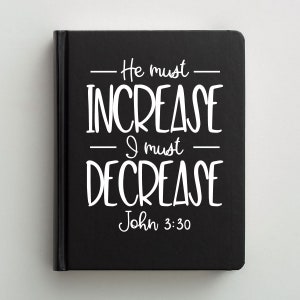 He must
INCREASE
I must
DECREASE
John 3:30